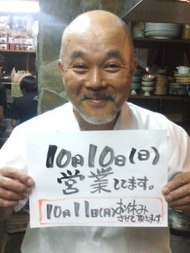 10月10日(日)
営業してます。
10月11日(月)お休み
させて頂きます